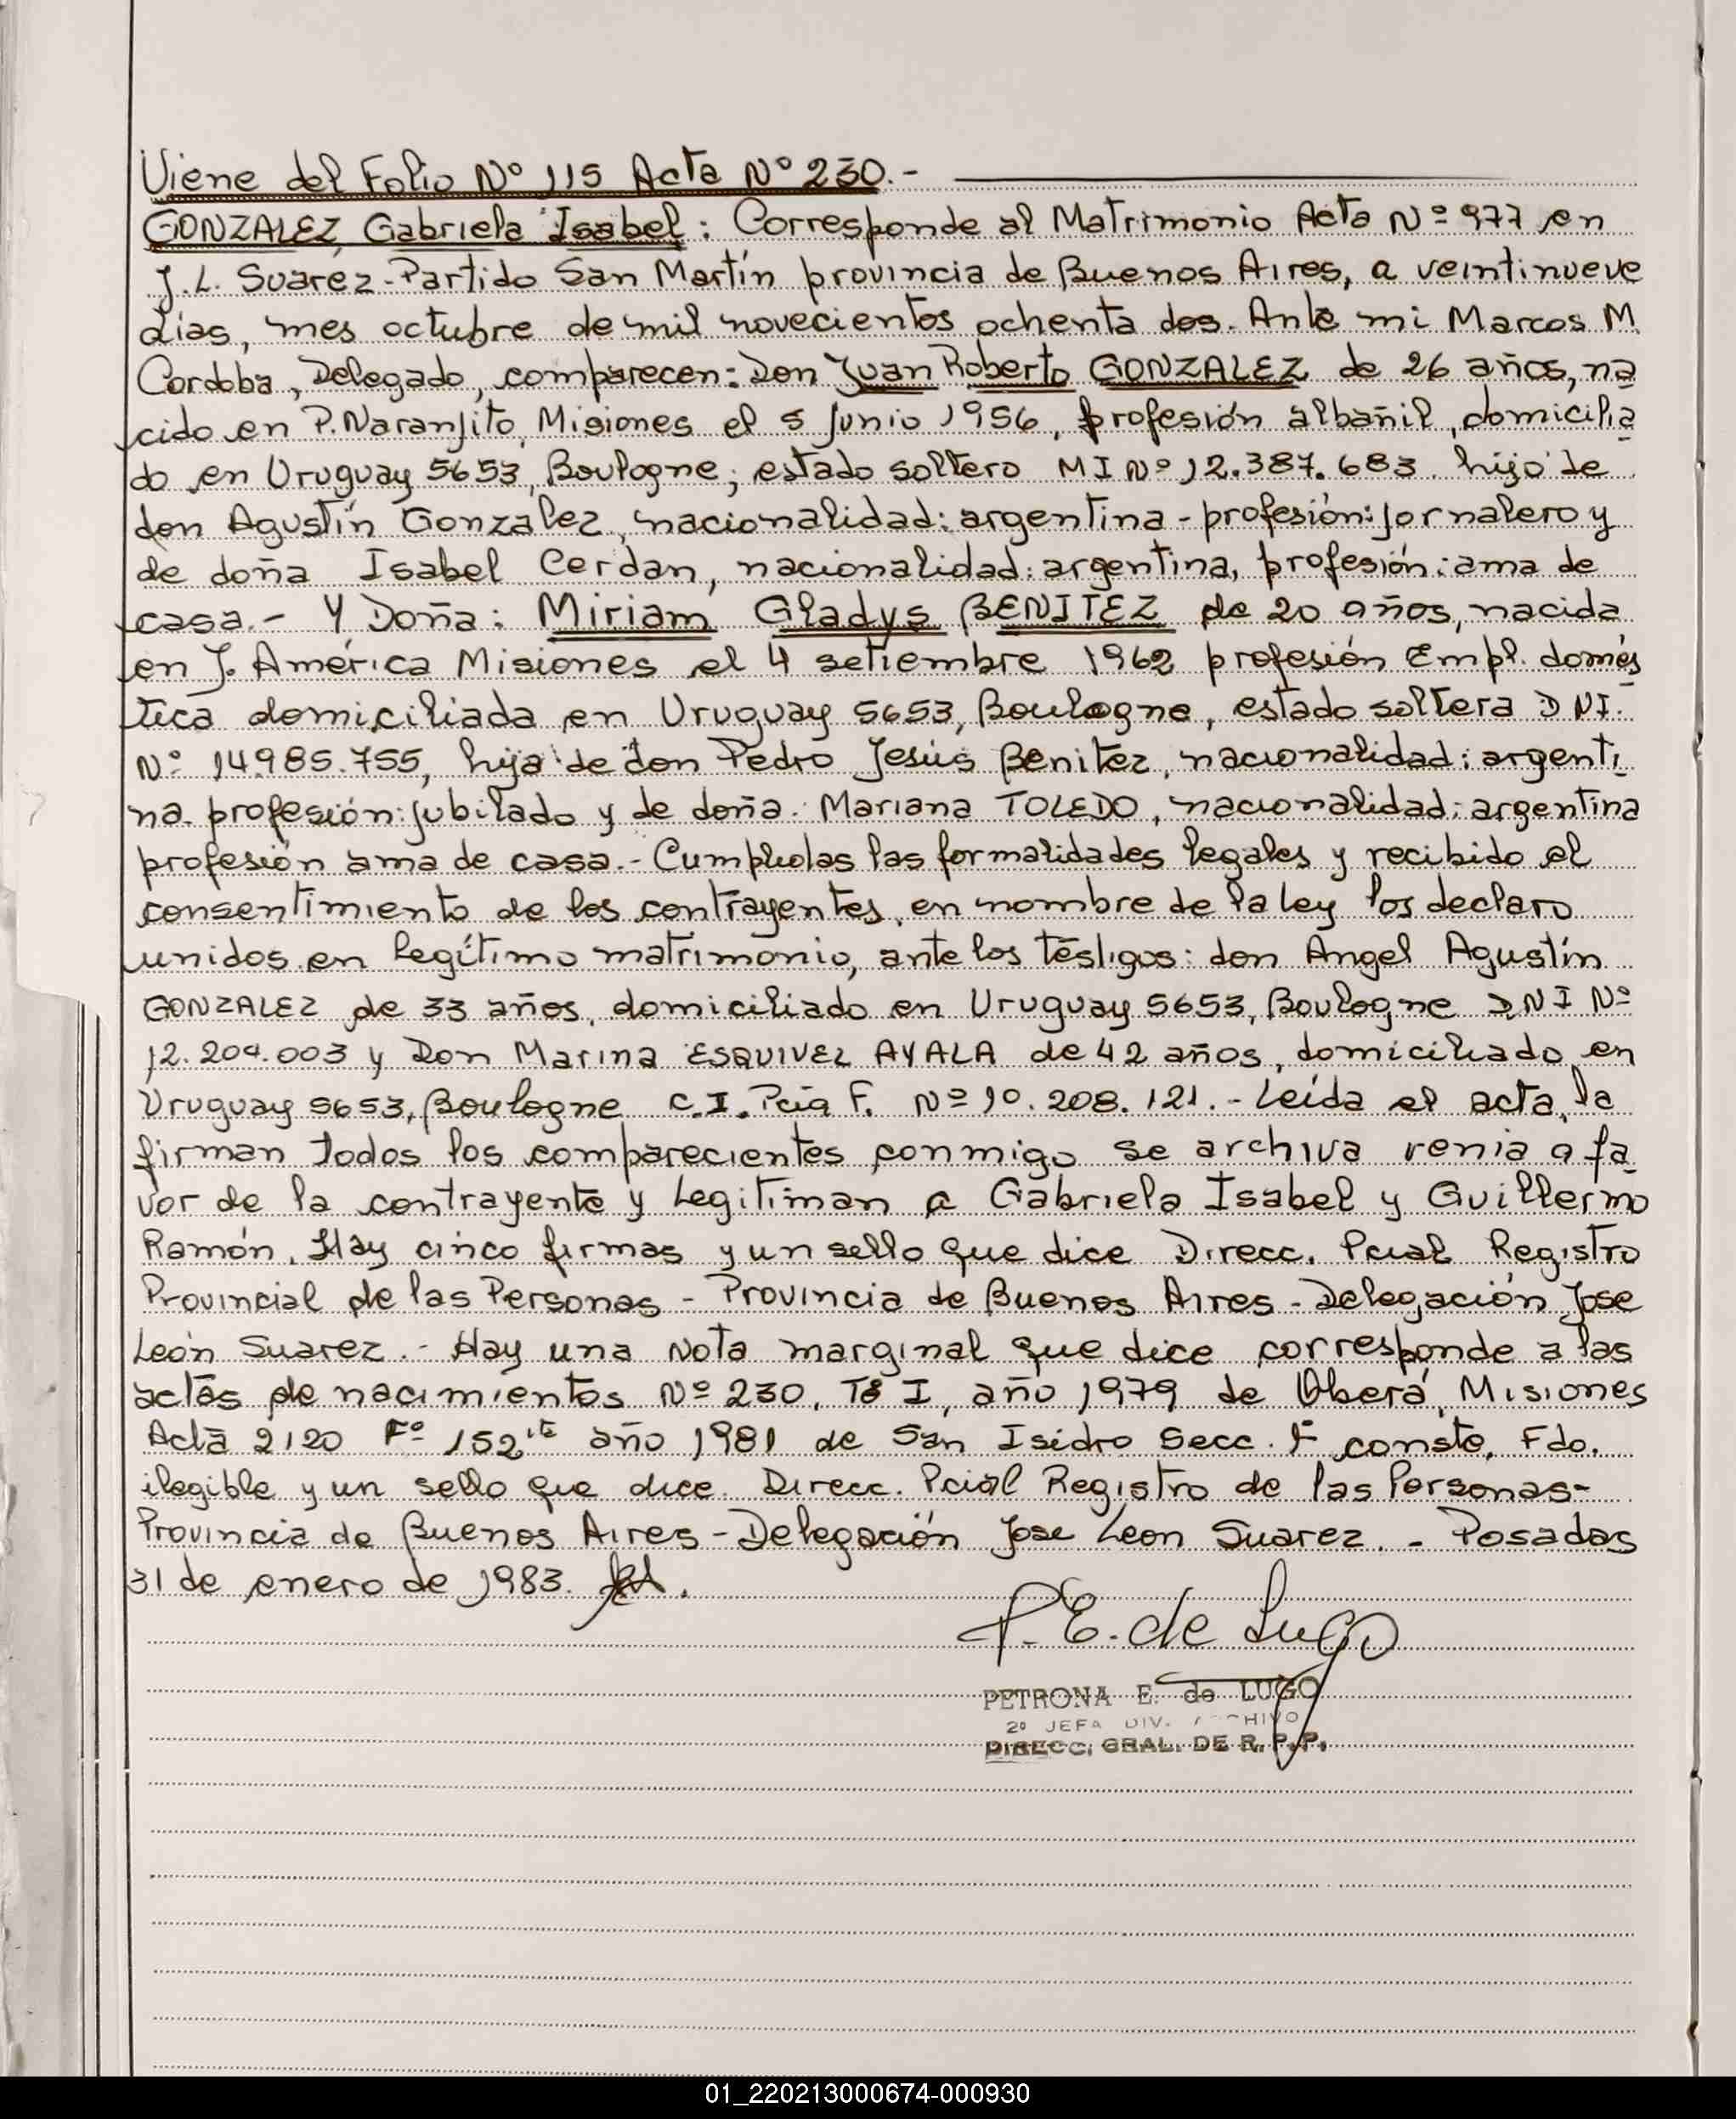 Viene del Folio Nº 115 Acta Nº 230.-
GONZALEZ, Gabriela Isabel: Corresponde al Matrimonio Acta Nº 977 en
J.L. Suarez-Partido San Martín provincia de Buenos Aires, a veintinueve
dias, mes octubre de mil novecientos ochenta dos. Ante mi Marcos M.
Cordoba, Delegado, comparecen: Don Juan Roberto GONZALEZ de 26 años, na
cido en P. Naranjito, Misiones el 5 Junio 1956, profesión albañil, domicilia
do en Uruguay 5653, Boulogne; estado soltero M I Nº 12.387.683. hijo de
don Agustín Gonzalez, nacionalidad: argentina - profesión: jornalero y
de doña Isabel Cerdan, nacionalidad: argentina, profesión: ama de
casa.- Y Doña: Miriam Gladys BENITEZ de 20 años, nacida
en J. América Misiones el 4 setiembre 1962 profesión Empl. domés
tica domiciliada en Uruguay 5653, Boulogne, estado soltera DNI.
Nº 14.985.755, hija de don Pedro Jesús Benitez, nacionalidad: argenti
na. profesión: jubilado y de doña. Mariana TOLEDO, nacionalidad: argentina
profesión ama de casa.- Cumplidas las formalidades legales y recibido el
consentimiento de los contrayentes, en nombre de la ley los declaro
unidos en legítimo matrimonio, ante los testigos: don Angel Agustín
GONZALEZ de 33 años, domiciliado en Uruguay 5653, Boulogne DNI Nº
12.204.003 y Don Marina ESQUIVEL AYALA de 42 años, domiciliado en
Uruguay 5653, Boulogne C.I. Pcia F. Nº 10.208.121.- Leída el acta, la
firman todos los comparecientes conmigo se archiva venia a fa
vor de la contrayente y Legitiman a Gabriela Isabel y Guillermo
Ramón. Hay cinco firmas y un sello que dice Direcc. Pcial Registro
Provincial de las Personas - Provincia de Buenos Aires - Delegación Jose
León Suarez.- Hay una Nota marginal que dice corresponde a las
actas de nacimientos Nº 230, Tº I, año 1979 de Oberá, Misiones
Acta 2120 Fº 152 año 1981 de San Isidro Secc. 1ª conste. Fdo.
ilegible y un sello que dice. Direcc. Pcial Registro de las Personas-
Provincia de Buenos Aires - Delegación Jose Leon Suarez. - Posadas
31 de enero de 1983.
P. E. de Lugo
PETRONA E. de LUGO
2º JEFA DIV. ARCHIVO
DIRECC. GRAL. DE R. P. P.
01_220213000674-000930